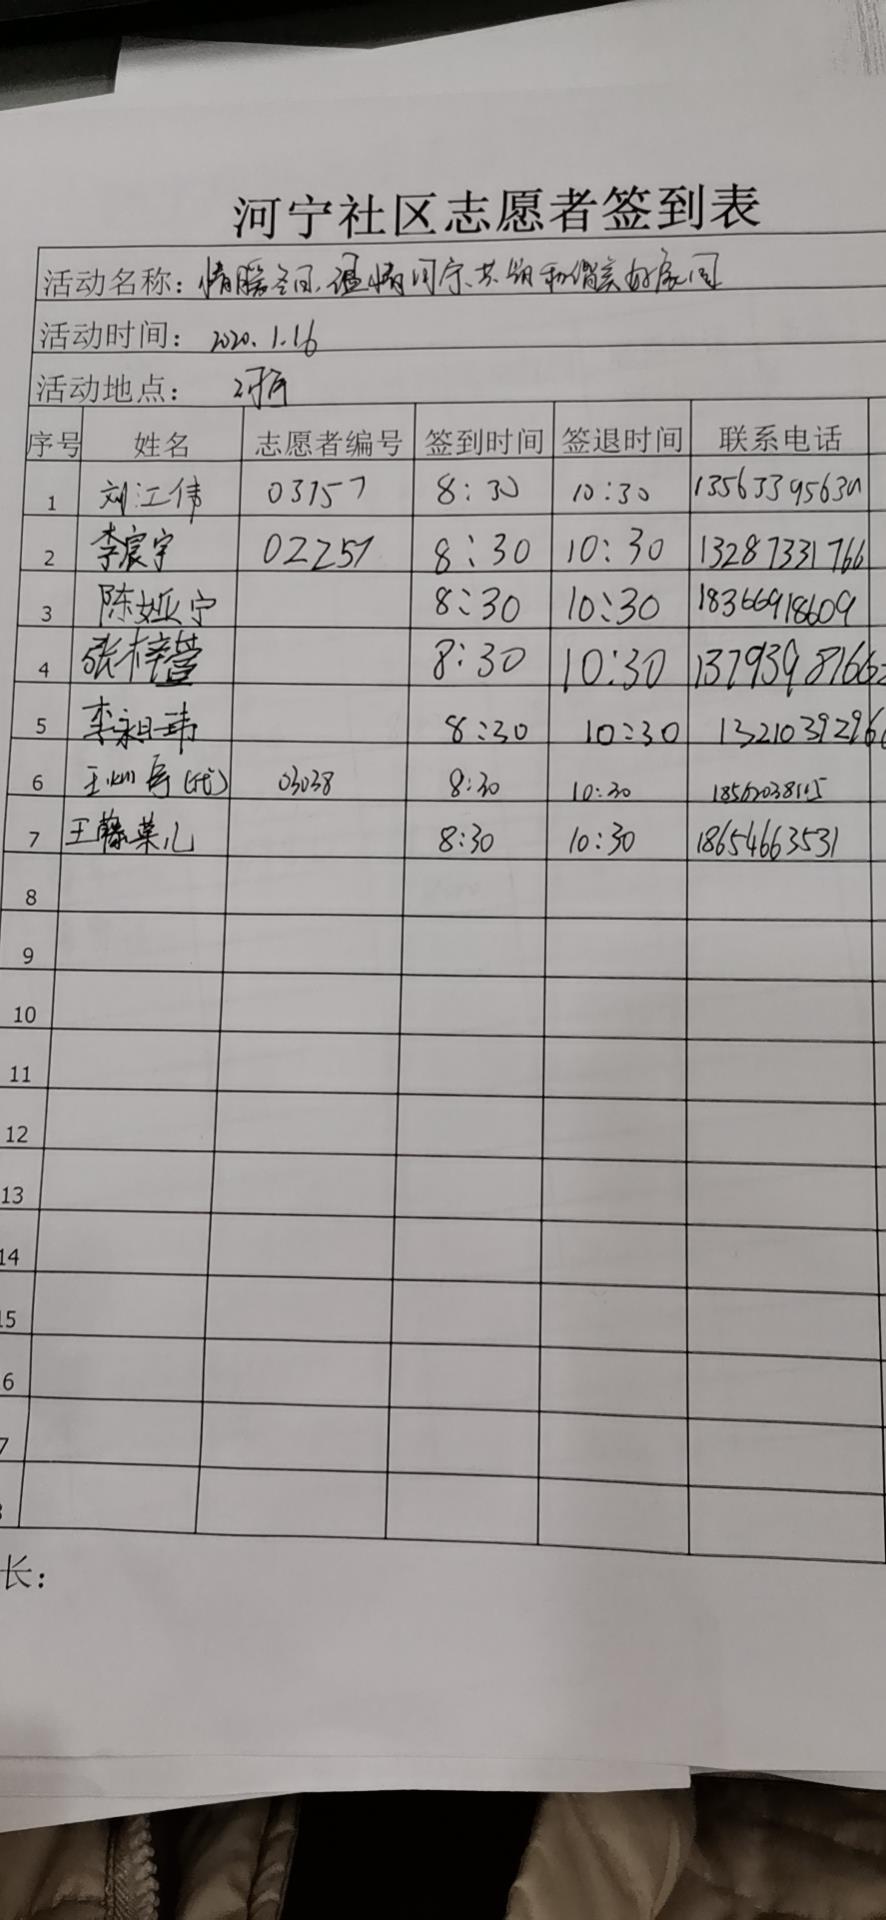 河宁社区志愿者签到表
活动名称：情暖冬日，温情河宁，共创和谐美好家园
活动时间：2020.1.16
活动地点：
序号 姓名 志愿者编号 签到时间 签退时间 联系电话
1 刘江伟 03157 8:30 10:30
2 李宸宇 02257 8:30 10:30 13287331766
3 陈娅宁 8:30 10:30 18366918609
4 张梓萱 8:30 10:30
5 8:30 10:30
6 03038 8:30 10:30
7 王藤菓儿 8:30 10:30 18654663531
8
9
10
11
12
13
14
15
6
7
长：